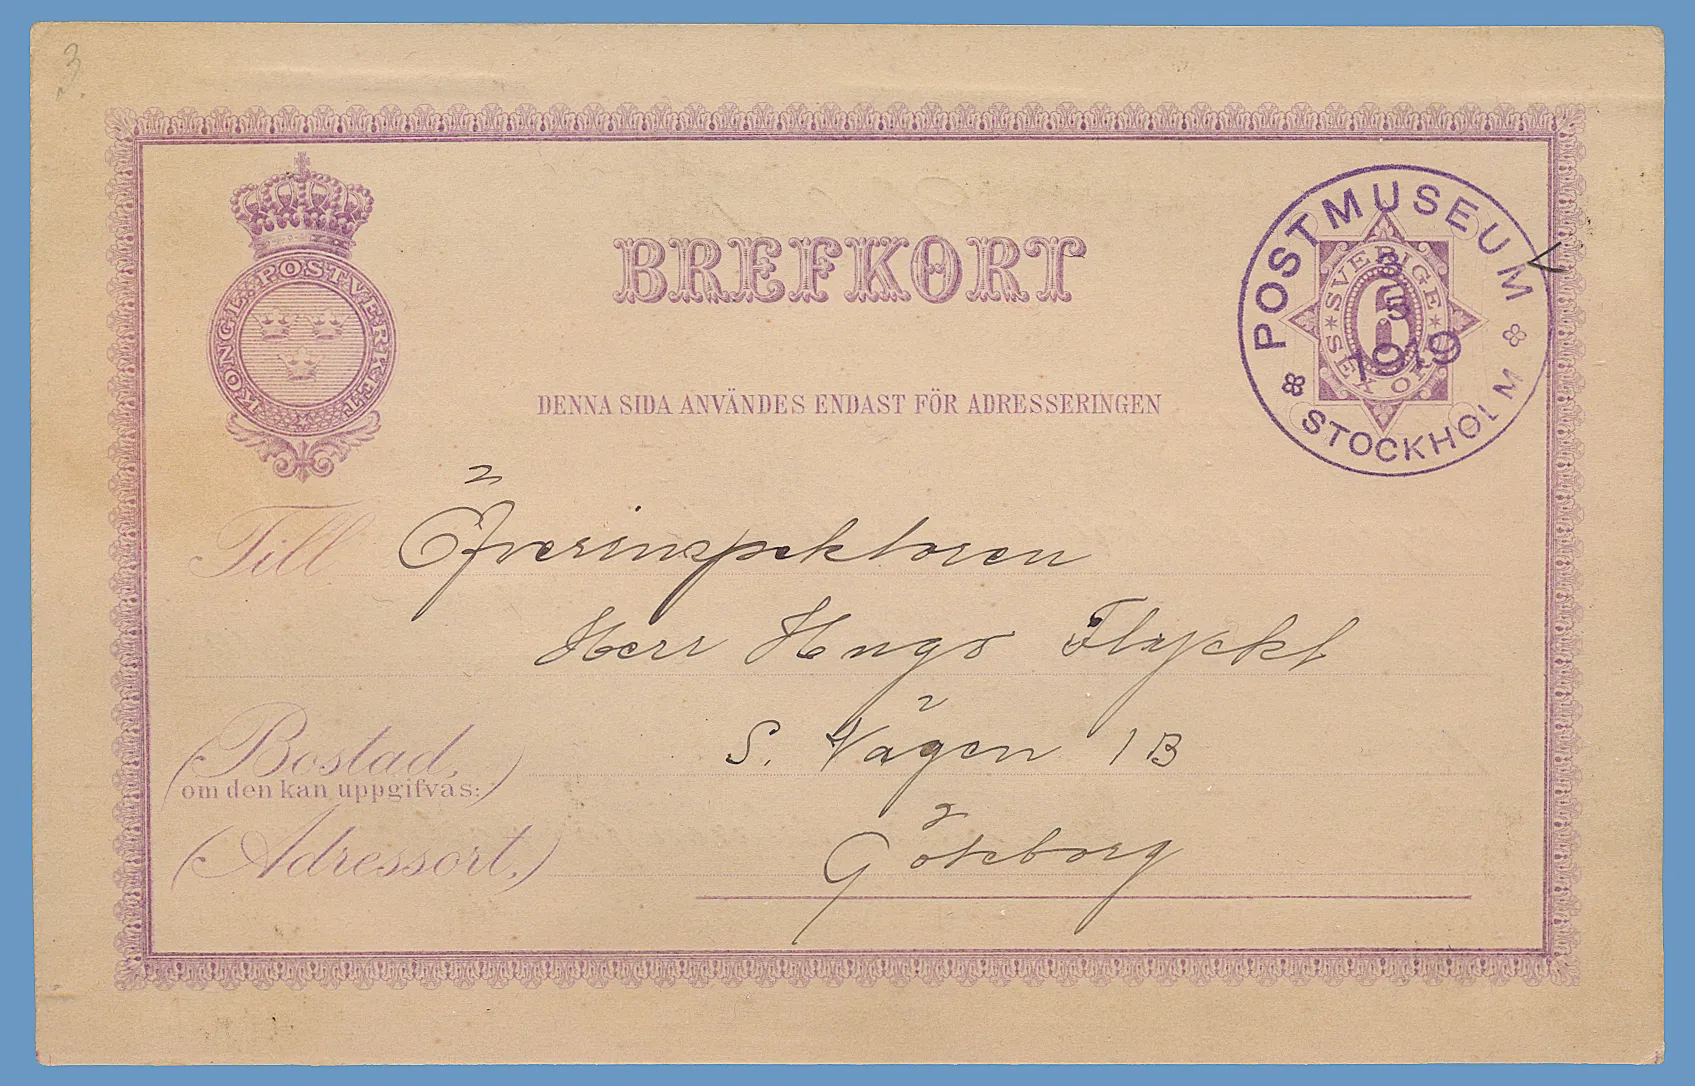 3
KONGL. POSTVERKET
BREFKORT
POSTMUSEUM
3
5
1919
STOCKHOLM
SVERIGE
6
SEX ÖRE
DENNA SIDA ANVÄNDES ENDAST FÖR ADRESSERINGEN
Till Öfverinspektoren
Herr Hugo Flyckt
(Bostad, S. Vägen 1B
om den kan uppgifvas:)
(Adressort,) Göteborg